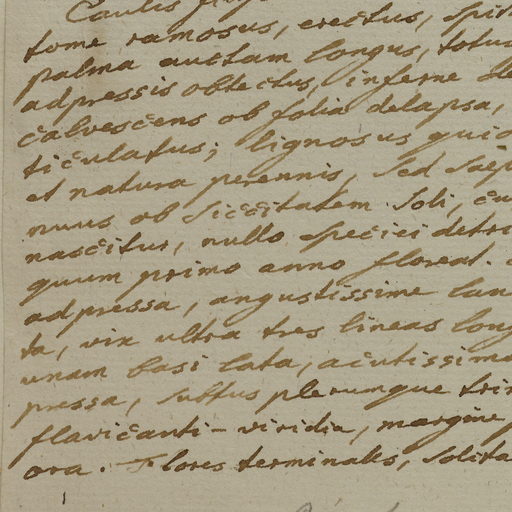 Caulis
tome ramosus, erectus,
palma auctam longus, totus
adpressis obtectus, inferne
calvescens ob folia delapsa,
ticulatus; lignosus
et natura perennis, sed saep
nuus ob siccitatem soli, cu
nascitur, nullo speciei detri
quum primo anno floreat.
adpressa, angustissime lan
ta, vix ultra tres lineas long
unam basi lata, acutissima
pressa, subtus plerumque
flavicanti-viridia, margine
ora. Flores terminales, solita